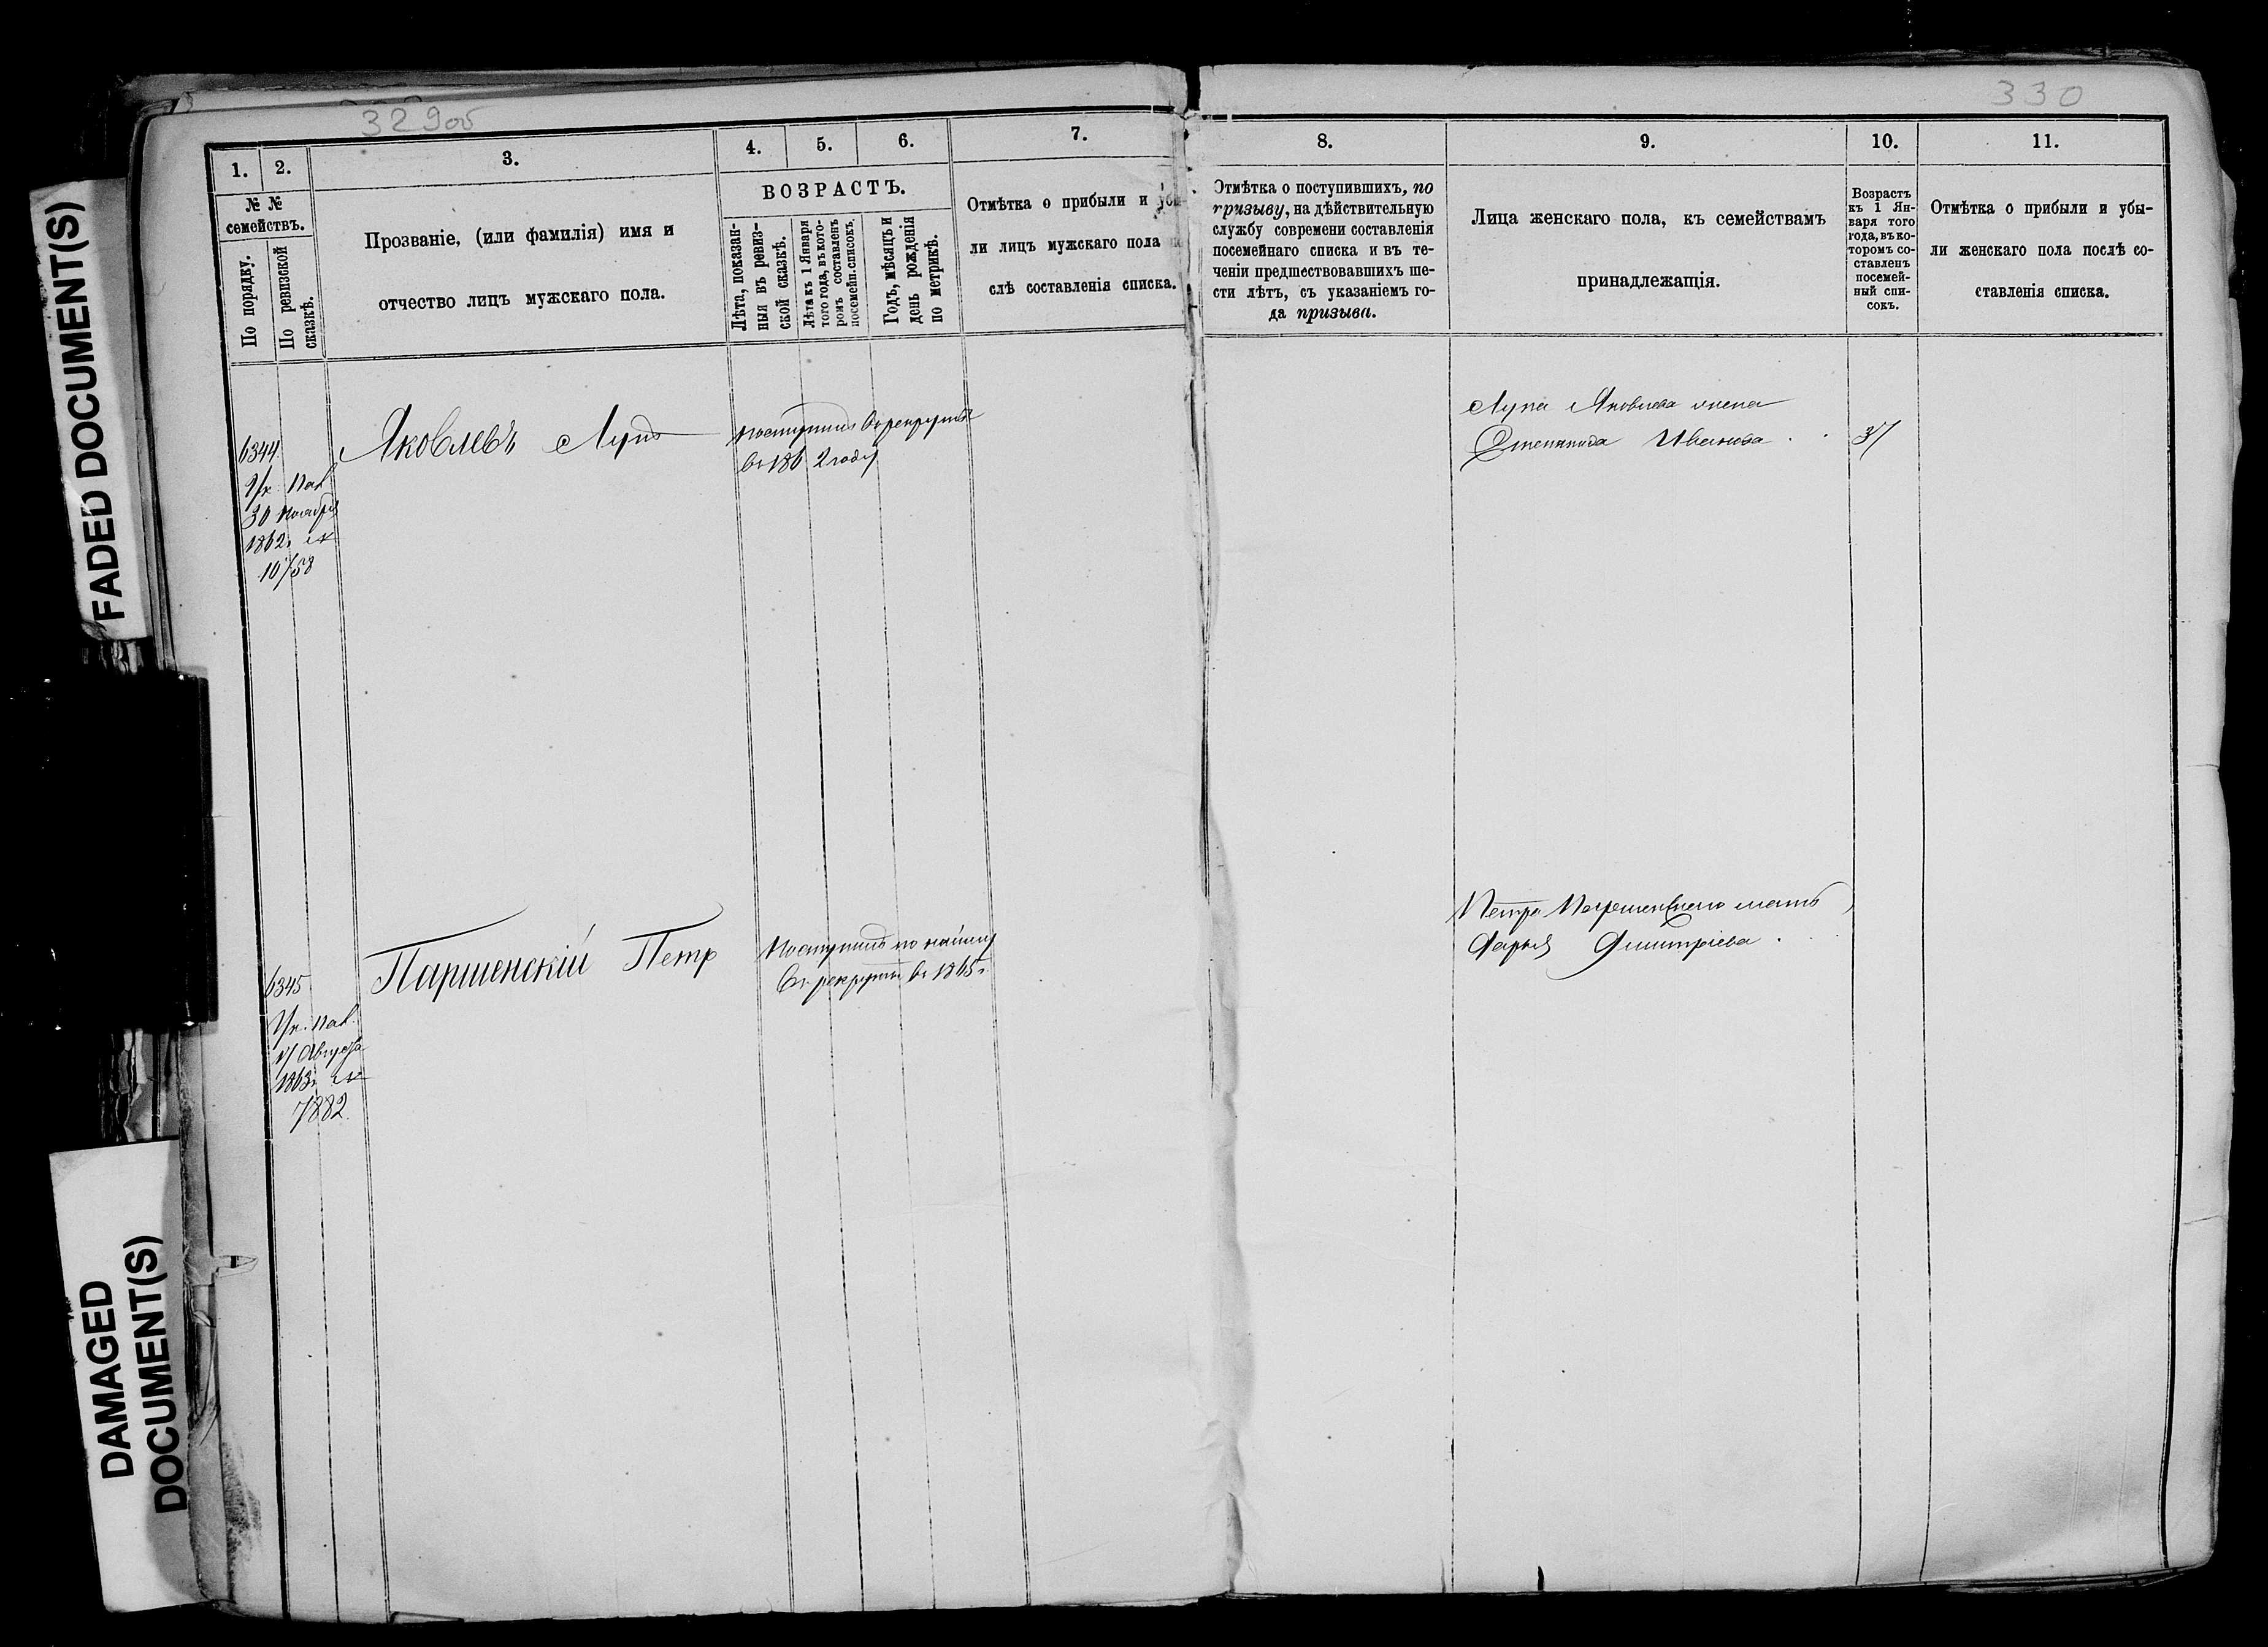 FADED DOCUMENT(S)
DAMAGED
DOCUMENT(S)
329об
330
1.
2.
3.
4.
5.
6.
7.
№ №
семействъ.
По порядку.
По ревизской
сказкѣ.
Прозваніе, (или фамилія) имя и
отчество лицъ мужскаго пола.
ВОЗРАСТЪ.
Лѣта, показан-
ныя въ ревиз-
ской сказкѣ.
Лѣта къ 1 Января
того года, въ кото-
ромъ составленъ
посемейн. списокъ.
Годъ, мѣсяцъ и
день рожденія
по метрикѣ.
Отмѣтка о прибыли и убы-
ли лицъ мужскаго пола по
слѣ составленія списка.
8.
9.
10.
11.
Отмѣтка о поступившихъ, по
призыву, на дѣйствительную
службу современи составленія
посемейнаго списка и въ те-
ченіи предшествовавшихъ ше-
сти лѣтъ, съ указаніемъ го-
да призыва.
Лица женскаго пола, къ семействамъ
принадлежащія.
Возрастъ
къ 1 Ян-
варя того
года, въ ко-
торомъ со-
ставленъ
посемей-
ный спи-
сокъ.
Отмѣтка о прибыли и убы-
ли женскаго пола послѣ со-
ставленія списка.
6344
Ук. Пал.
30 Ноября
1862г. №
10758
Яковлевъ Лупъ
поступилъ въ рекруты
въ 1862 году
Лупа Яковлева жена
Степанида Иванова
37
6345
Ук. Пал.
Августа
1863г. №
7882.
Паршенскій Петр
Поступилъ по найму
въ рекруты въ 1865г.
Петра Паршенскаго мать
Дарья Дмитріева